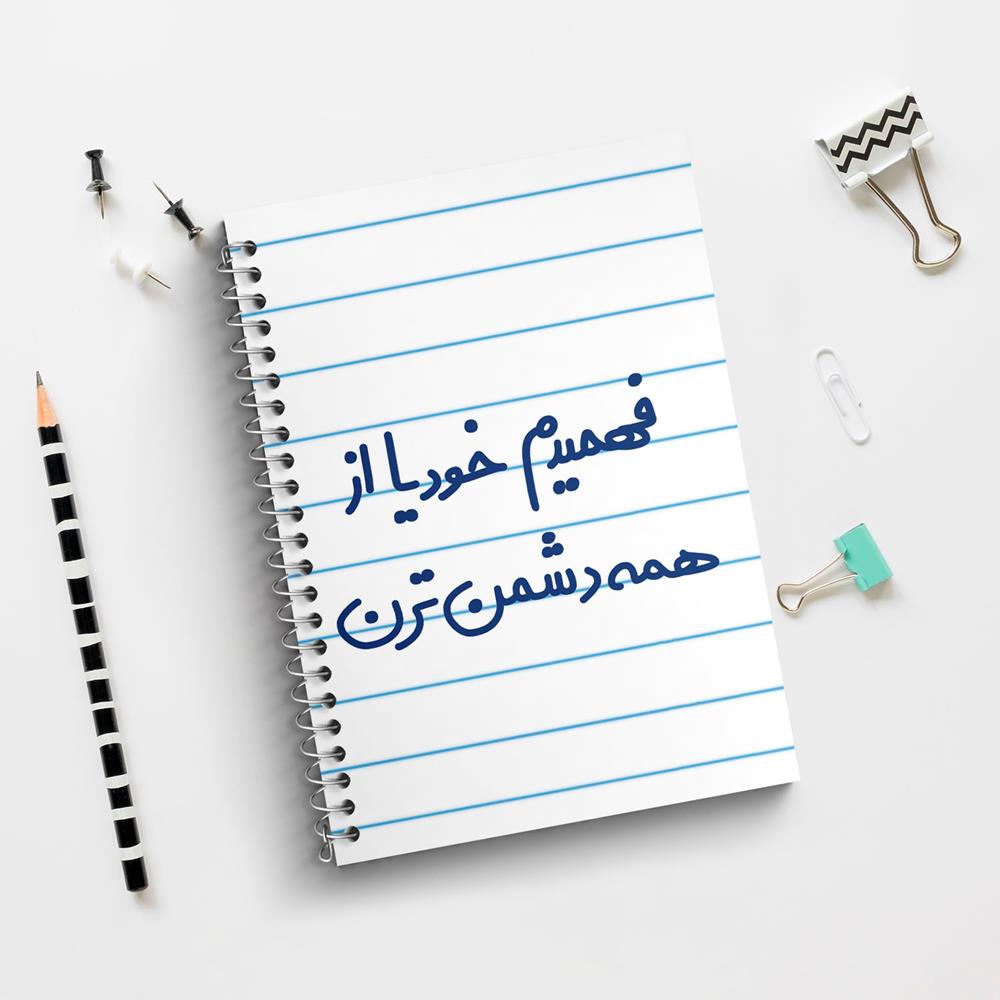 فهمیدم خودیا از
همه دشمن ترن